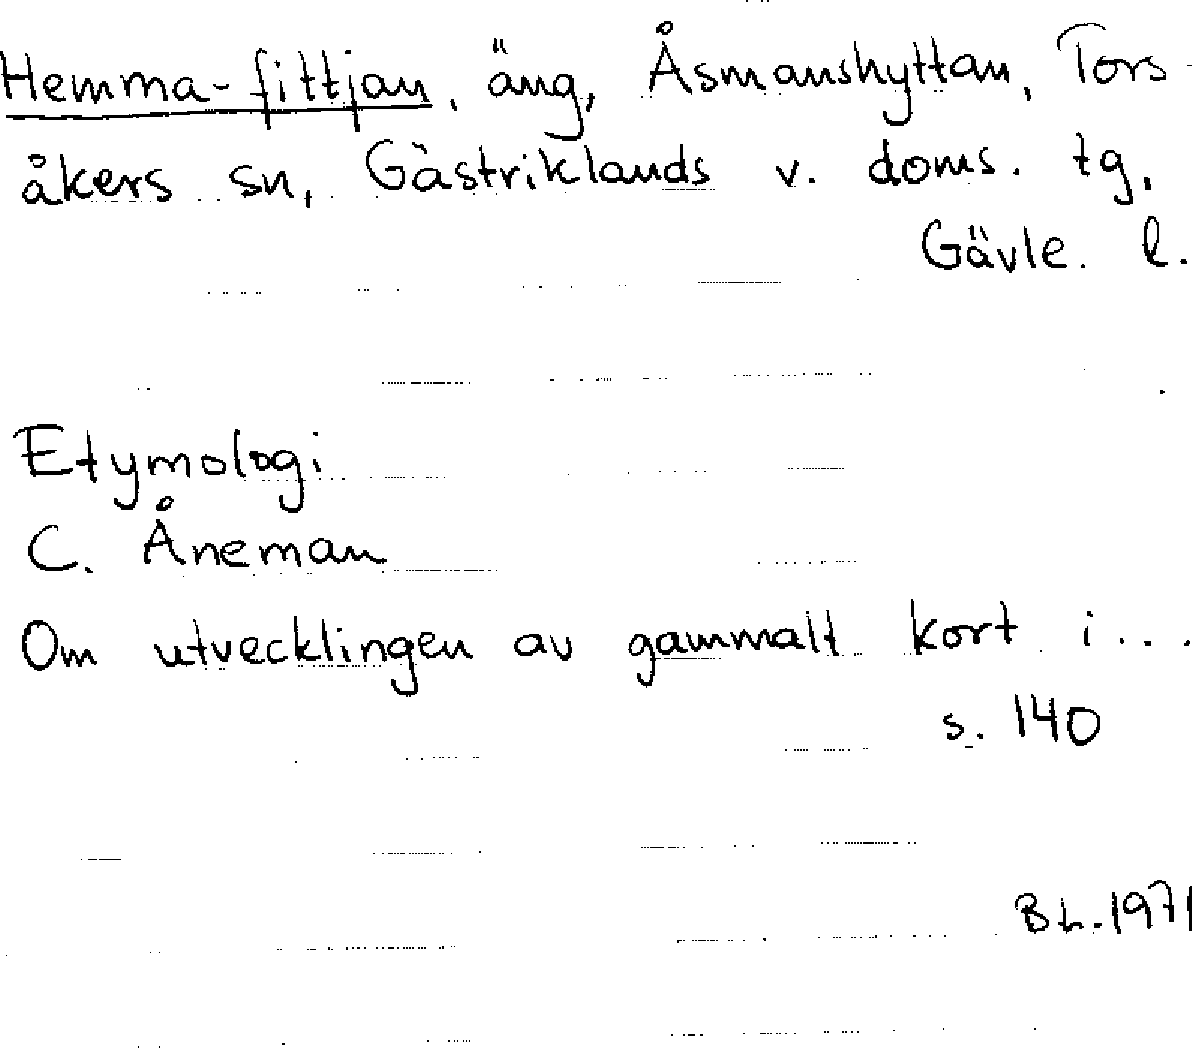 Hemma-fittjan, äng, Åsmanshyttan, Tors-
åkers sn, Gästriklands v. doms. tg,
Gävle. l.
Etymologi
C. Åneman
Om utvecklingen av gammalt kort i...
s. 140
B L. 1971